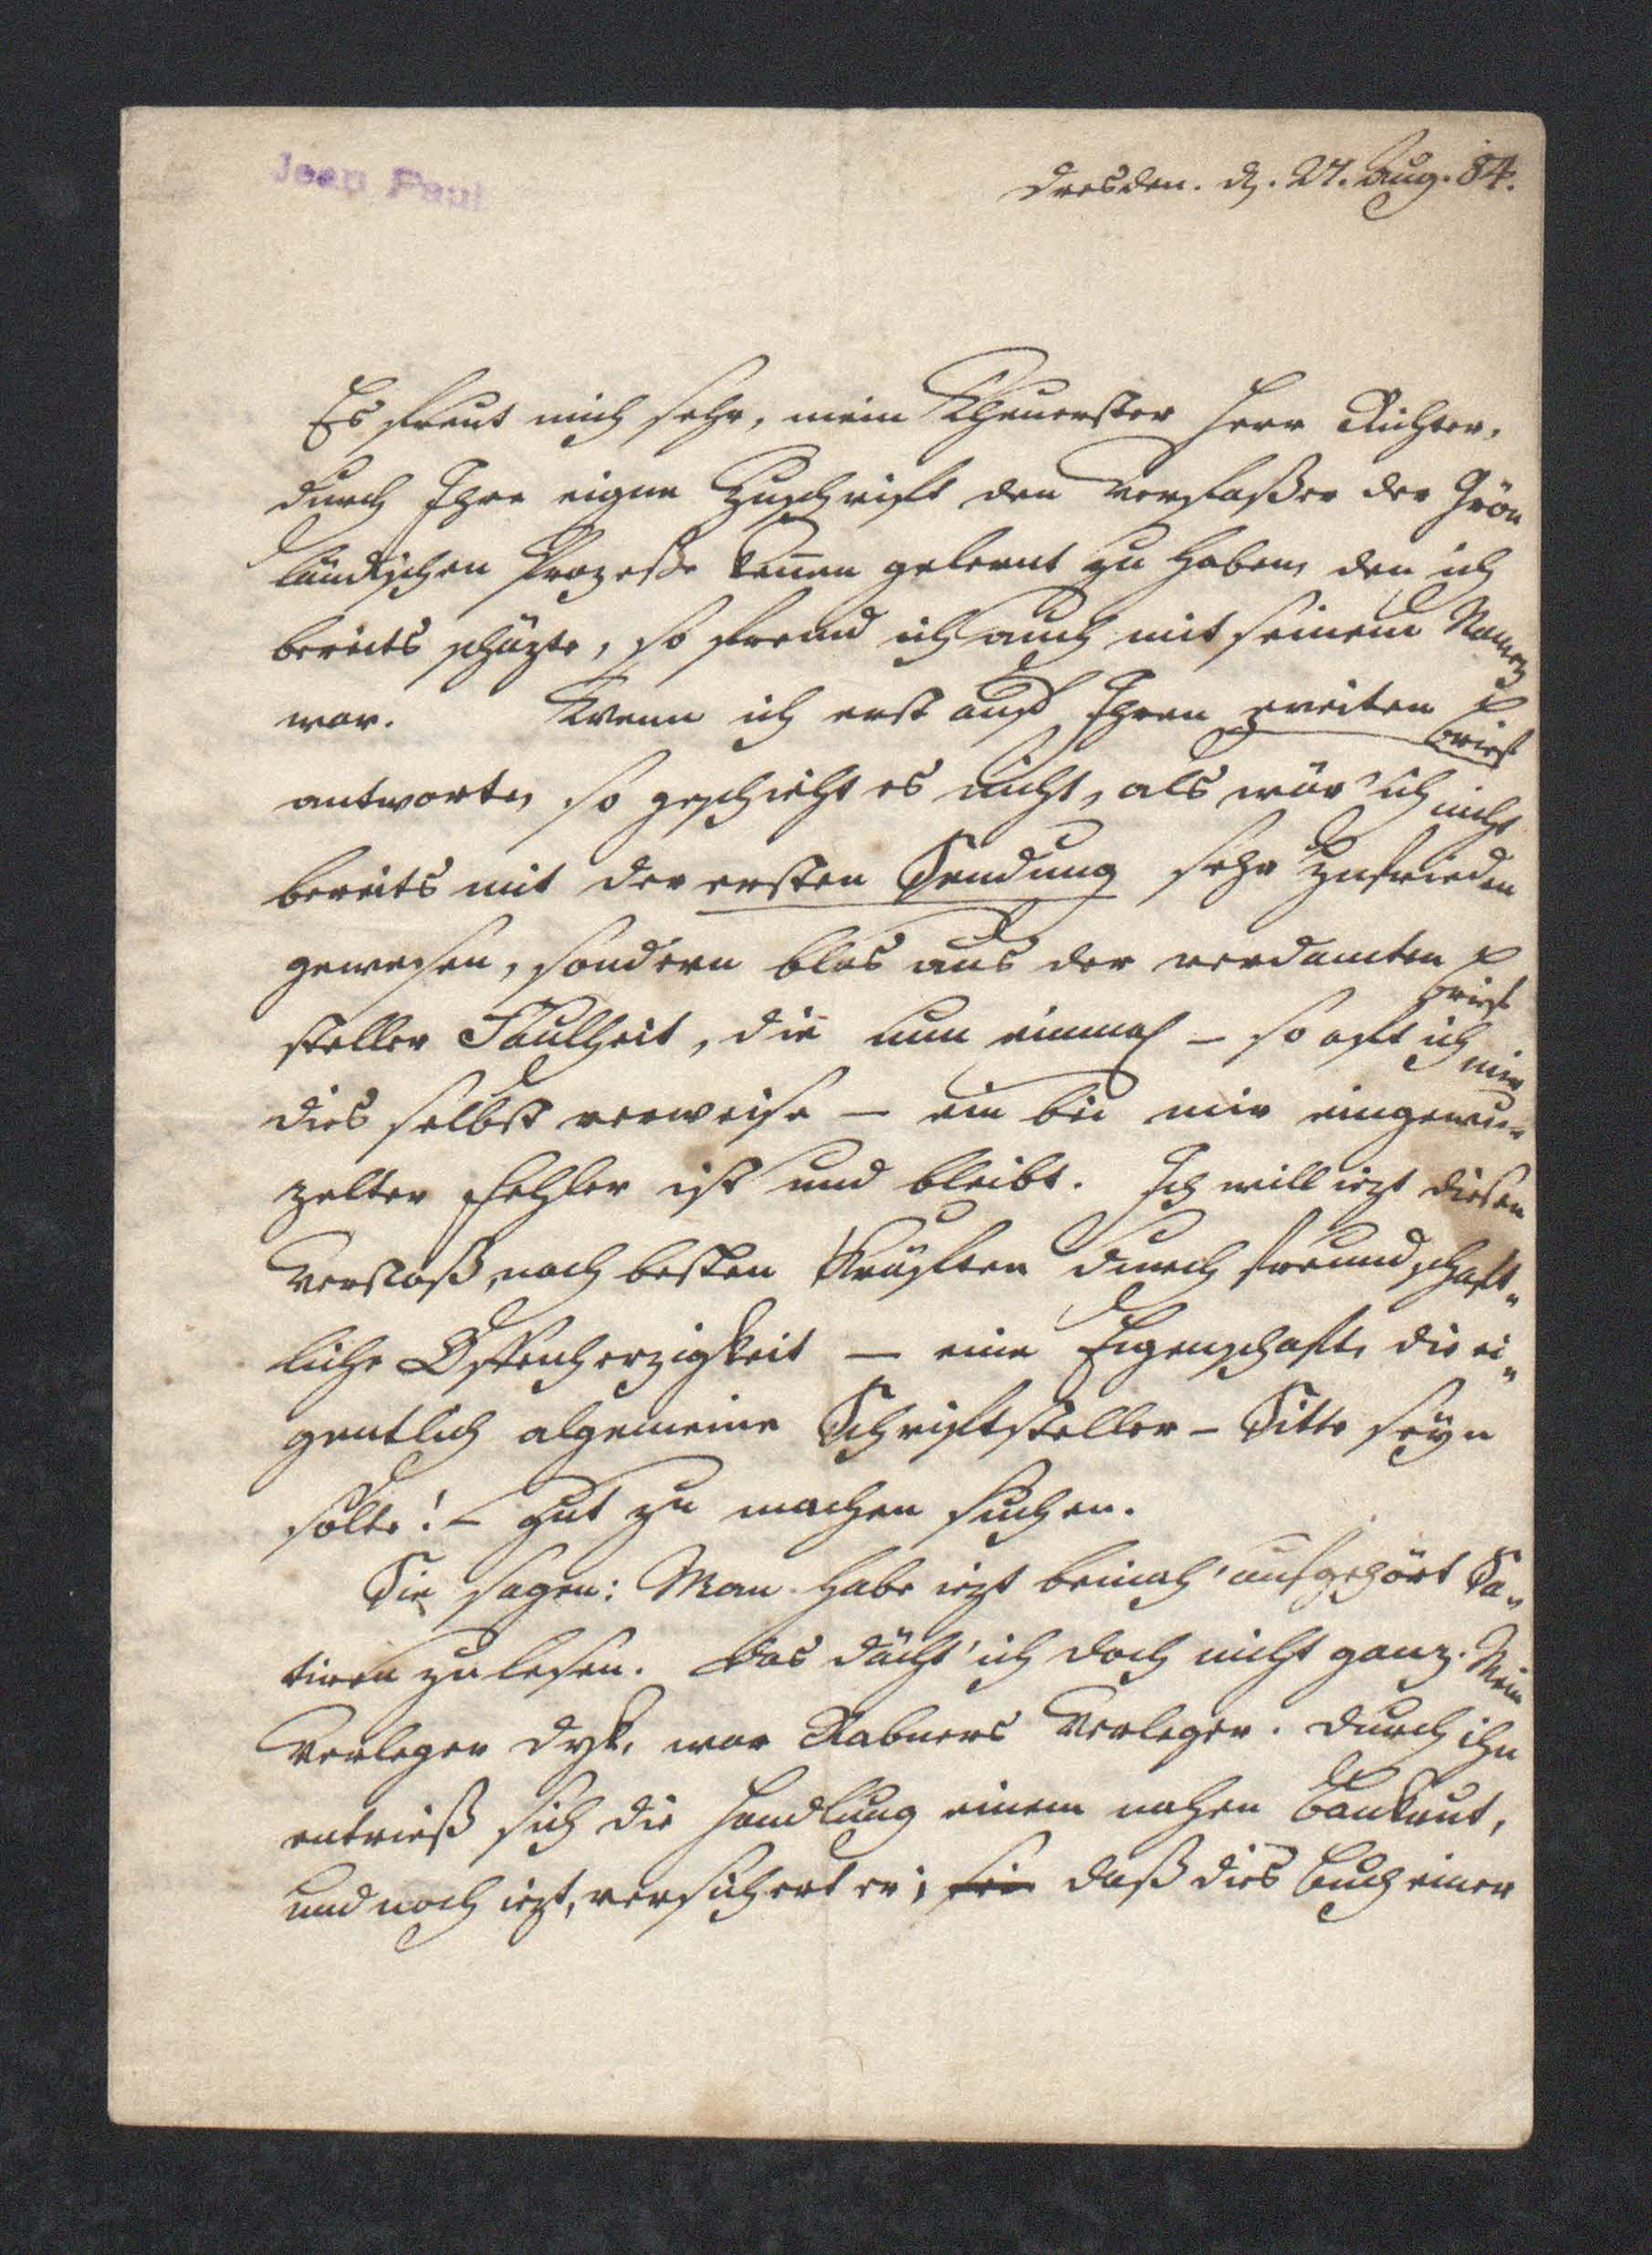 Jean Paul
Dresden. d. 27. Aug. 84.
Es freut mich sehr, mein Theuerster Herr Richter,
durch Ihre eigne Zuschrift den Verfaßer der Grön
ländischen Prozeße kennen gelernt zu haben, den ich
bereits schäzte, so fremd ich auch mit seinem Namen
war. Wenn ich erst auf Ihren zweiten Brief
antworte, so geschieht es nicht, als wär' ich nicht
bereits mit der ersten Sendung sehr zufrieden
gewesen, sondern blos aus der verdamten Brief
steller Faulheit, die nun einmal – so oft ich mir
dies selbst verweise – ein bei mir eingewur-
zelter Fehler ist und bleibt. Ich will iezt diesen
Verstoß, nach besten Kräften durch freundschaft-
liche Offenherzigkeit – eine Eigenschaft, die ei-
gentlich algemeine Schriftsteller-Sitte seyn
solte! – gut zu machen suchen.
Sie sagen: Man habe iezt beinah' aufgehört Sa-
tiren zu lesen. Das dächt' ich doch nicht ganz. Mein
Verleger Dyk, war Rabners Verleger. Durch ihn
entrieß sich die Handlung einem nahen Bankrut,
und noch iezt, versichert er, sei daß dies Buch einer